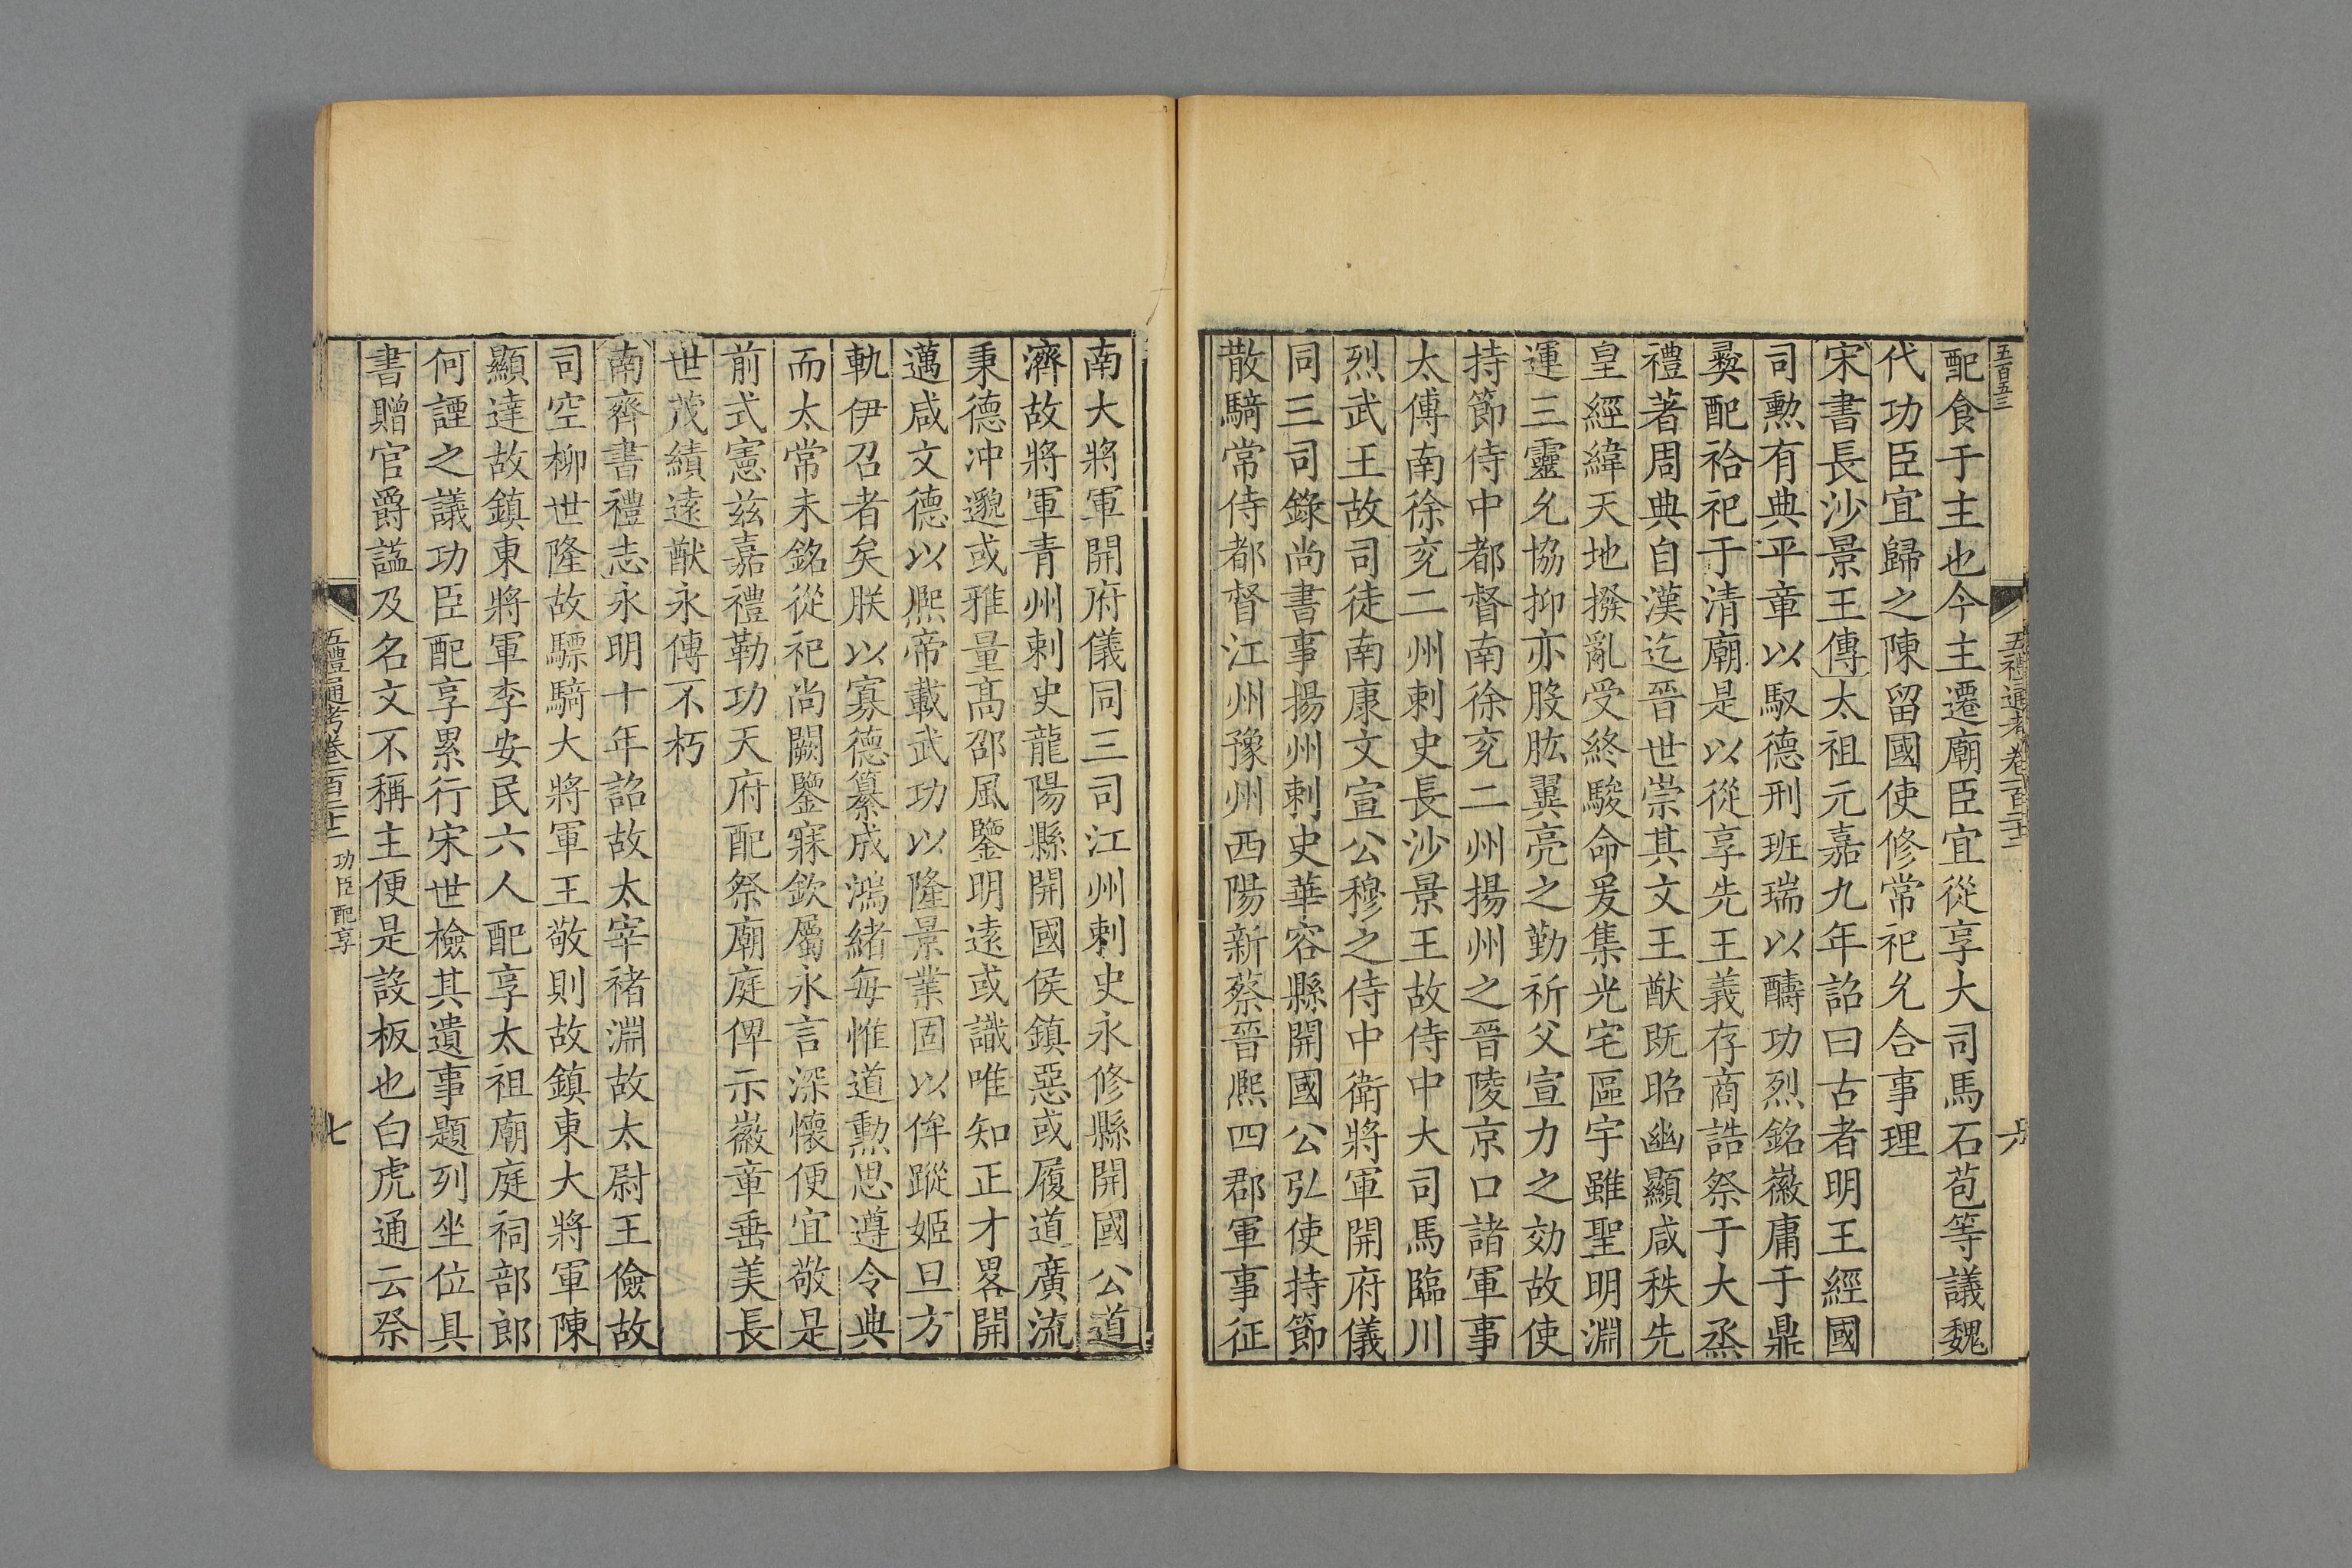 五百五三
五禮通考卷一百二十二
六
配食于主也今主遷廟臣宜從享大司馬石苞等議魏
代功臣宜歸之陳留國使修常祀允合事理
宋書長沙景王傳太祖元嘉九年詔曰古者明王經國
司勲有典平章以馭德刑班瑞以疇功烈銘徽庸于鼎
彞配祫祀于清廟是以從享先王義存商誥祭于大烝
禮著周典自漢迄晉世崇其文王猷既昭幽顯咸秩先
皇經緯天地撥亂受終駿命爰集光宅區宇雖聖明淵
運三靈允協抑亦股肱翼亮之勤祈父宣力之効故使
持節侍中都督南徐兗二州揚州之晉陵京口諸軍事
太傅南徐兗二州刺史長沙景王故侍中大司馬臨川
烈武王故司徒南康文宣公穆之侍中衛將軍開府儀
同三司錄尚書事揚州刺史華容縣開國公弘使持節
散騎常侍都督江州豫州西陽新蔡晉熈四郡軍事征
南大將軍開府儀同三司江州刺史永修縣開國公道
濟故將軍青州刺史龍陽縣開國侯鎮惡或履道廣流
秉德沖邈或雅量髙邵風鑒明遠或識唯知正才畧開
邁咸文德以熈帝載武功以隆景業固以侔蹤姬旦方
軌伊召者矣朕以寡德纂成鴻緒每惟道勲思遵令典
而太常未銘從祀尚闕鑒寐欽屬永言深懷便宜敬是
前式憲兹嘉禮勒功天府配祭廟庭俾示徽章垂美長
世茂績遠猷永傳不朽
南齊書禮志永明十年詔故太宰褚淵故太尉王儉故
司空柳世隆故驃騎大將軍王敬則故鎮東大將軍陳
顯達故鎮東將軍李安民六人配享太祖廟庭祠部郎
何諲之議功臣配享累行宋世檢其遺事題列坐位具
書贈官爵謚及名文不稱主便是設板也白虎通云祭
五禮通考卷一百二十二 功臣配享
七